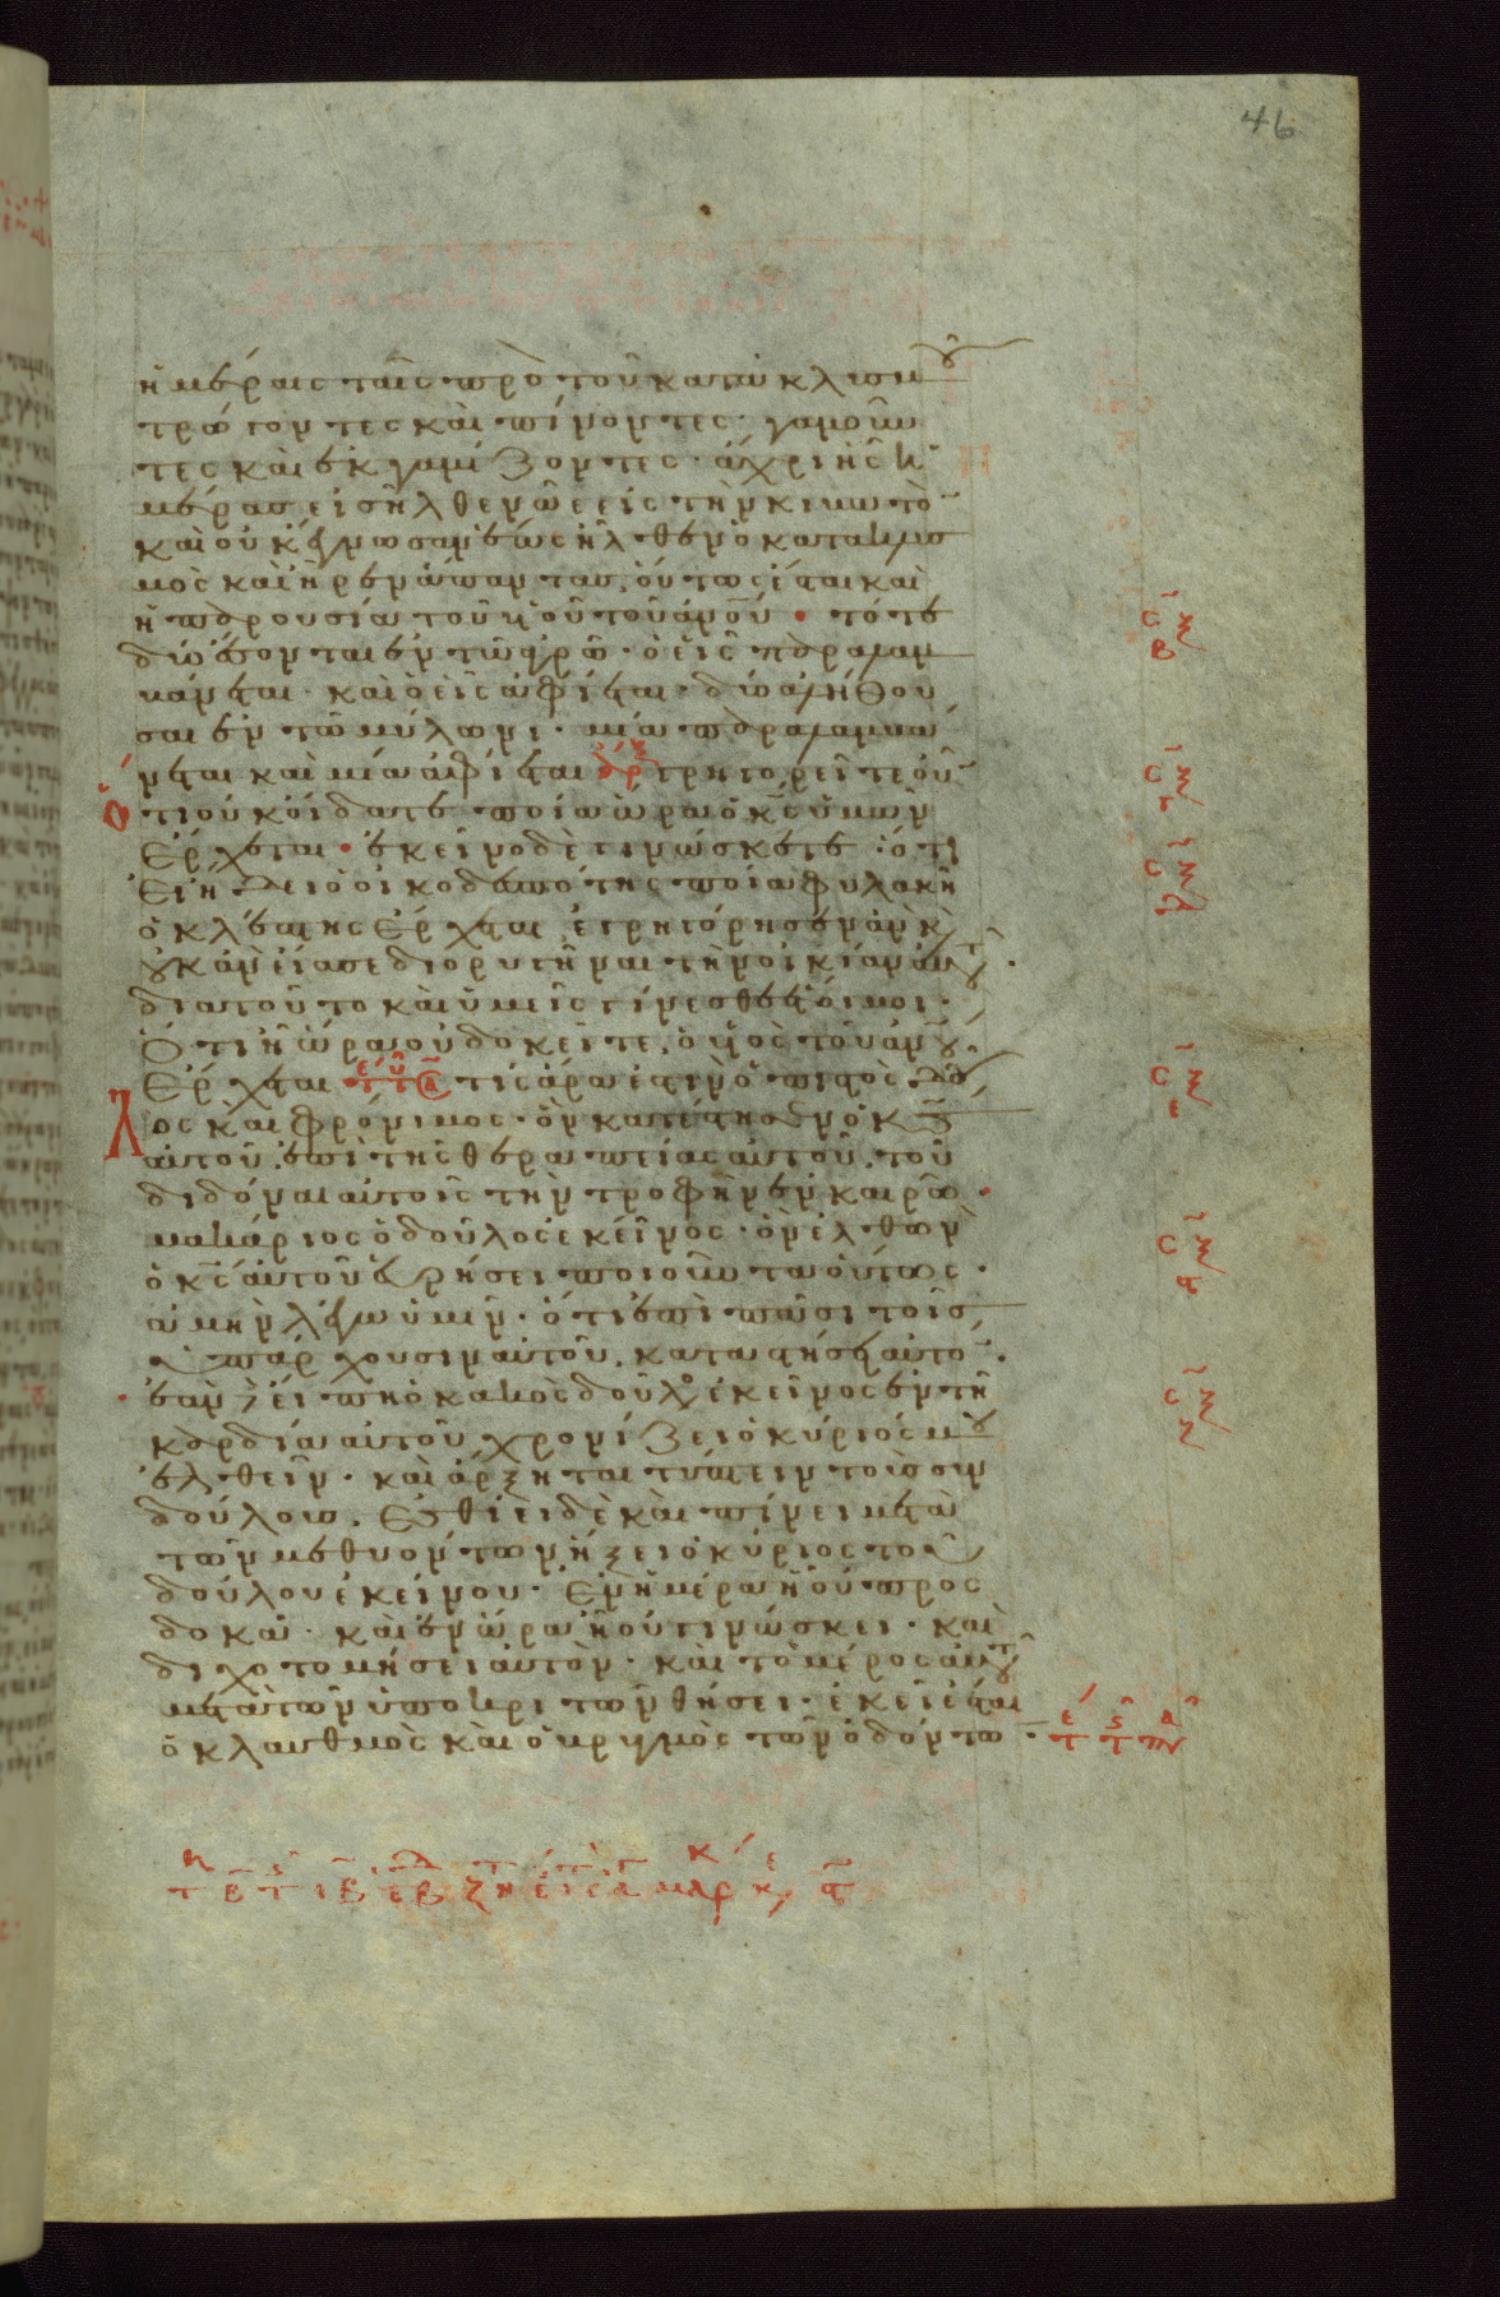 46
ἡμέραις ταῖς πρὸ τοῦ κατακλισμοῦ
τρώγοντες καὶ πίνοντες· γαμοῦν
τες καὶ ἐκγαμίζοντες· ἄχρι ἧς ἡ
μέρας εἰσῆλθε νῶε εἰς τὴν κιβωτὸ
καὶ οὐκ ἔγνωσαν ἕως ἦλθεν ὁ κατακλυσ
μὸς καὶ ἦρεν ἅπαντας, οὕτως ἔσται καὶ
ἡ παρουσία τοῦ υἱοῦ τοῦ ἀνου · τότε
δύο ἔσονται ἐν τῷ ἀγρῷ· ὁ εἷς παραλαμ
βάνεται· καὶ ὁ εἷς ἀφίεται· δύο ἀλήθου
σαι ἐν τῷ μύλωνι· μία παραλαμβά
νεται καὶ μία ἀφίεται γρηγορεῖτε οὖν
ὅτι οὐκ οἴδατε ποία ὥρα ὁ κς ὑμῶν
ἔρχεται · ἐκεῖνο δὲ γινώσκετε ὅτι
εἰ ἤδει ὁ οἰκοδεσπότης ποία φυλακῆ
ὁ κλέπτης ἔρχεται ἐγρηγόρησεν ἂν κὶ
οὐκ ἂν εἴασε διορυγῆναι τὴν οἰκίαν αὐτοῦ·
διατοῦτο καὶ ὑμεῖς γίνεσθε ἕτοιμοι·
Ὅτι ἧ ὥρα οὐ δοκεῖτε, ὁ υἱὸς τοῦ ἀνου
ἔρχεται τίς ἄρα ἐστὶν ὁ πιστὸς δοῦ
λος καὶ φρόνιμος· ὃν κατέστησεν ὁ κς
αὐτοῦ ἐπὶ τῆς θεραπείας αὐτοῦ, τοῦ
διδόναι αὐτοῖς τὴν τροφὴν ἐν καιρῷ ·
μακάριος ὁ δοῦλος ἐκεῖνος· ὃν ἐλθὼν
ὁ κς αὐτοῦ εὑρήσει ποιοῦντα οὕτως ·
ἀμὴν λέγω ὑμῖν· ὅτι ἐπὶ πᾶσι τοῖς
ὑπάρχουσιν αὐτοῦ, καταστήσει αὐτὸ·
ἐὰν δὲ εἴπη ὁ κακὸς δοῦλος ἐκεῖνος ἐν τῆ
καρδία αὐτοῦ χρονίζει ὁ κύριός μου
ἐλθεῖν· καὶ ἄρξηται τύπτειν τοὺς συν
δούλους, ἐσθίει δὲ καὶ πίνει μετὰ
τῶν μεθυόντων ἥξει ὁ κύριος τοῦ
δούλου ἐκείνου· ἐν ἡμέρα ἧ οὐ προς
δοκᾶ· καὶ ἐν ὥρα ἧ οὐ γινώσκει· καὶ
διχοτομήσει αὐτὸν· καὶ τὸ μέρος αὐτοῦ
μετὰ τῶν ὑποκριτῶν θήσει· ἐκεῖ ἔσται
ὁ κλαυθμὸς καὶ ὁ βρυγμὸς τῶν ὀδόντω ·